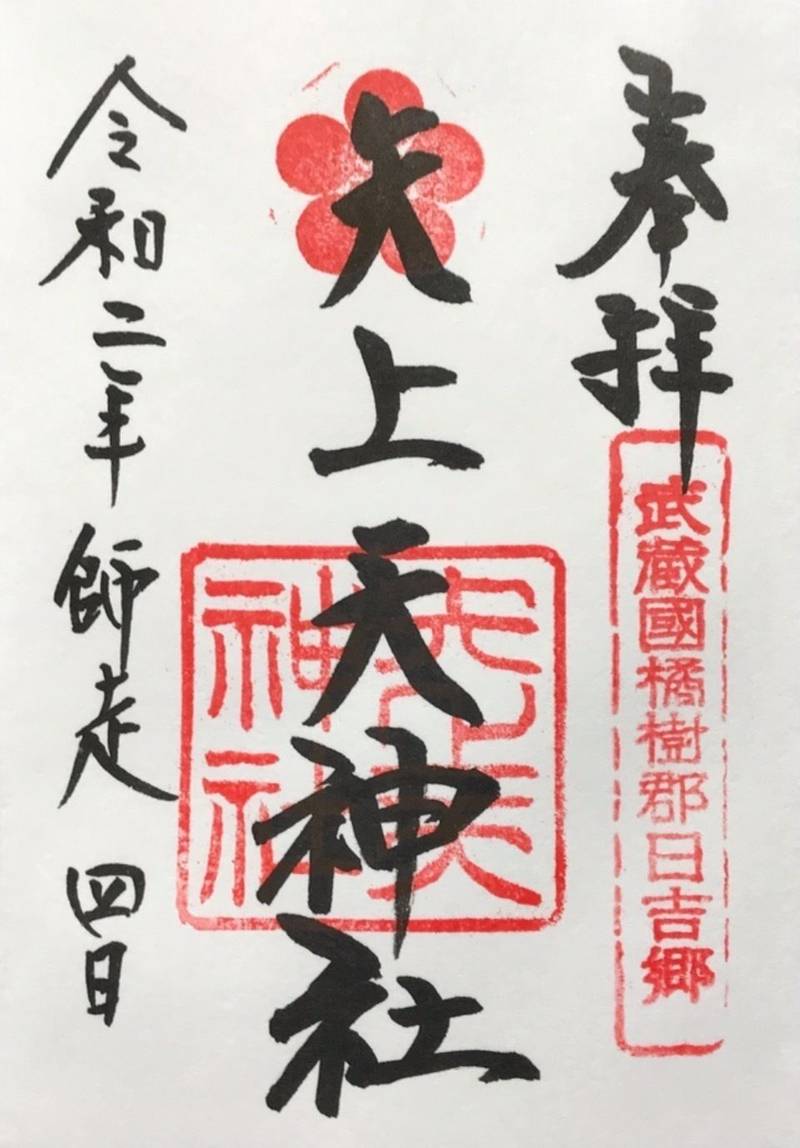 奉拝
武蔵國橘樹郡日吉郷
矢上天神社
神社
令和二年師走 四日